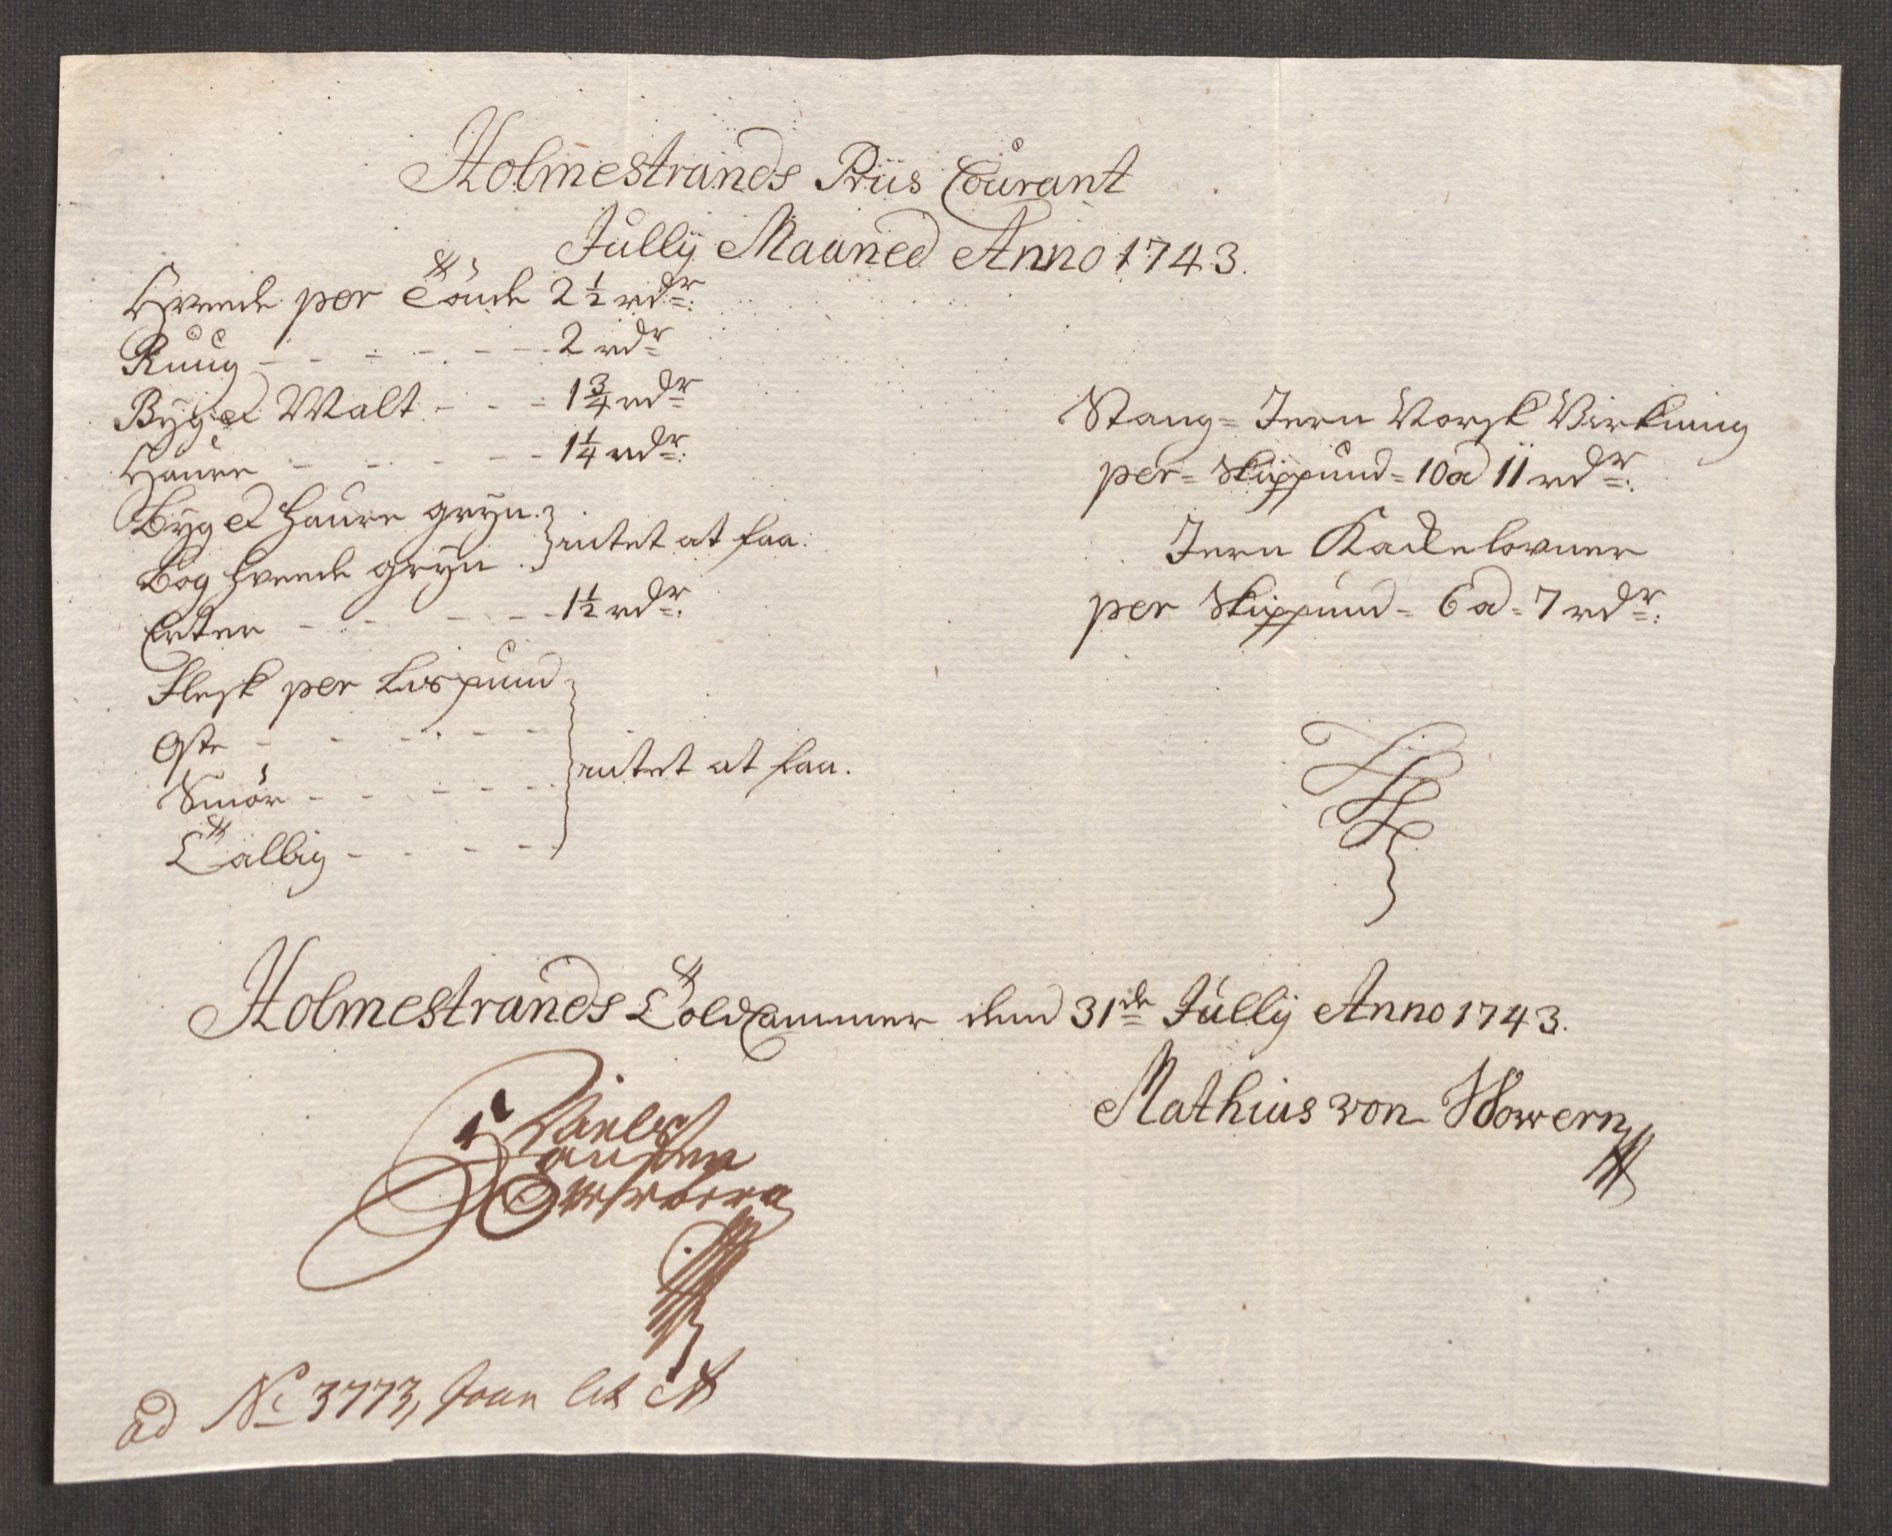 Holmestrands Priis Courant
Jully Maaned Anno 1743.
Hveede per Tönde 2 1/2 rdr:
Ruug - - - - - - 2 rdr
Byg et Malt - - - 1 3/4 rdr
Haure - - - - - 1 1/4 rdr:
Byg et Haure gryn.
Bog Hveede gryn. intet at faa:
Erter - - - - - 1 1/2 rdr:
Flesk per Lispund
Oste - - - - - -
Smör - - - - - intet at faa.
Tallig - - - -
Stang = Jern Norsk Virkning
per = Skippund = 10 a 11 rdr:
Jern Kackelovner
per Skippund = 6 a = 7 rdr:
Holmestrands Told Cammer dend 31de Jully Anno 1743.
Mathius von Howern
Niels
Hansen
ad No 3773, Lit A